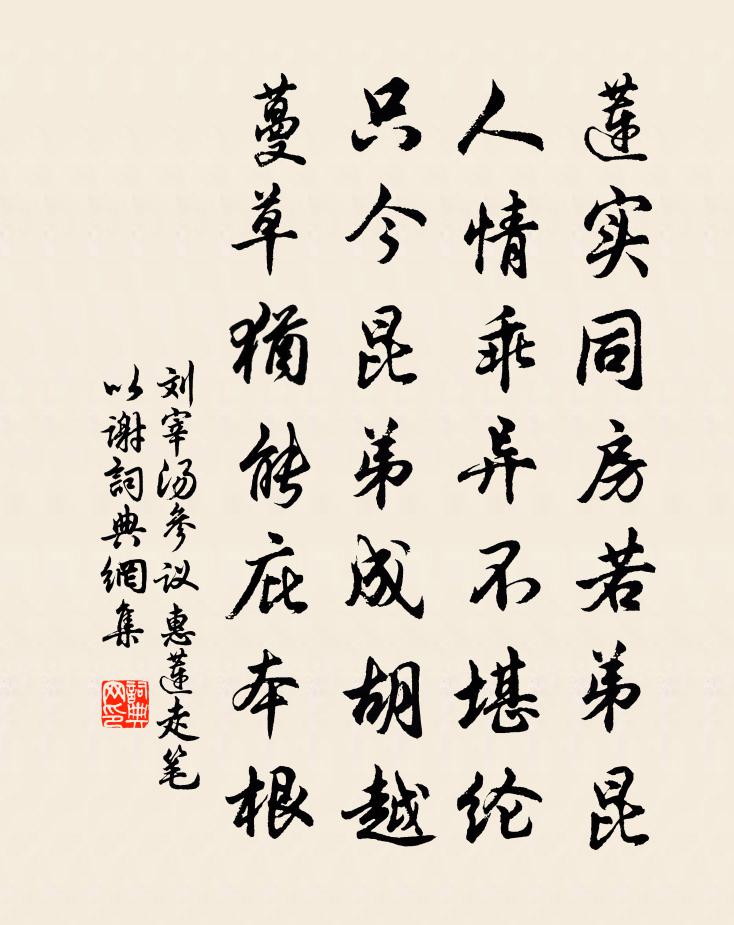 蓮实同房若弟昆
人情乖异不堪纶
只今昆弟成胡越
蔓草猶能庇本根
刘宰汤参议惠蓮走笔
以谢詞典網集
詞典
网印